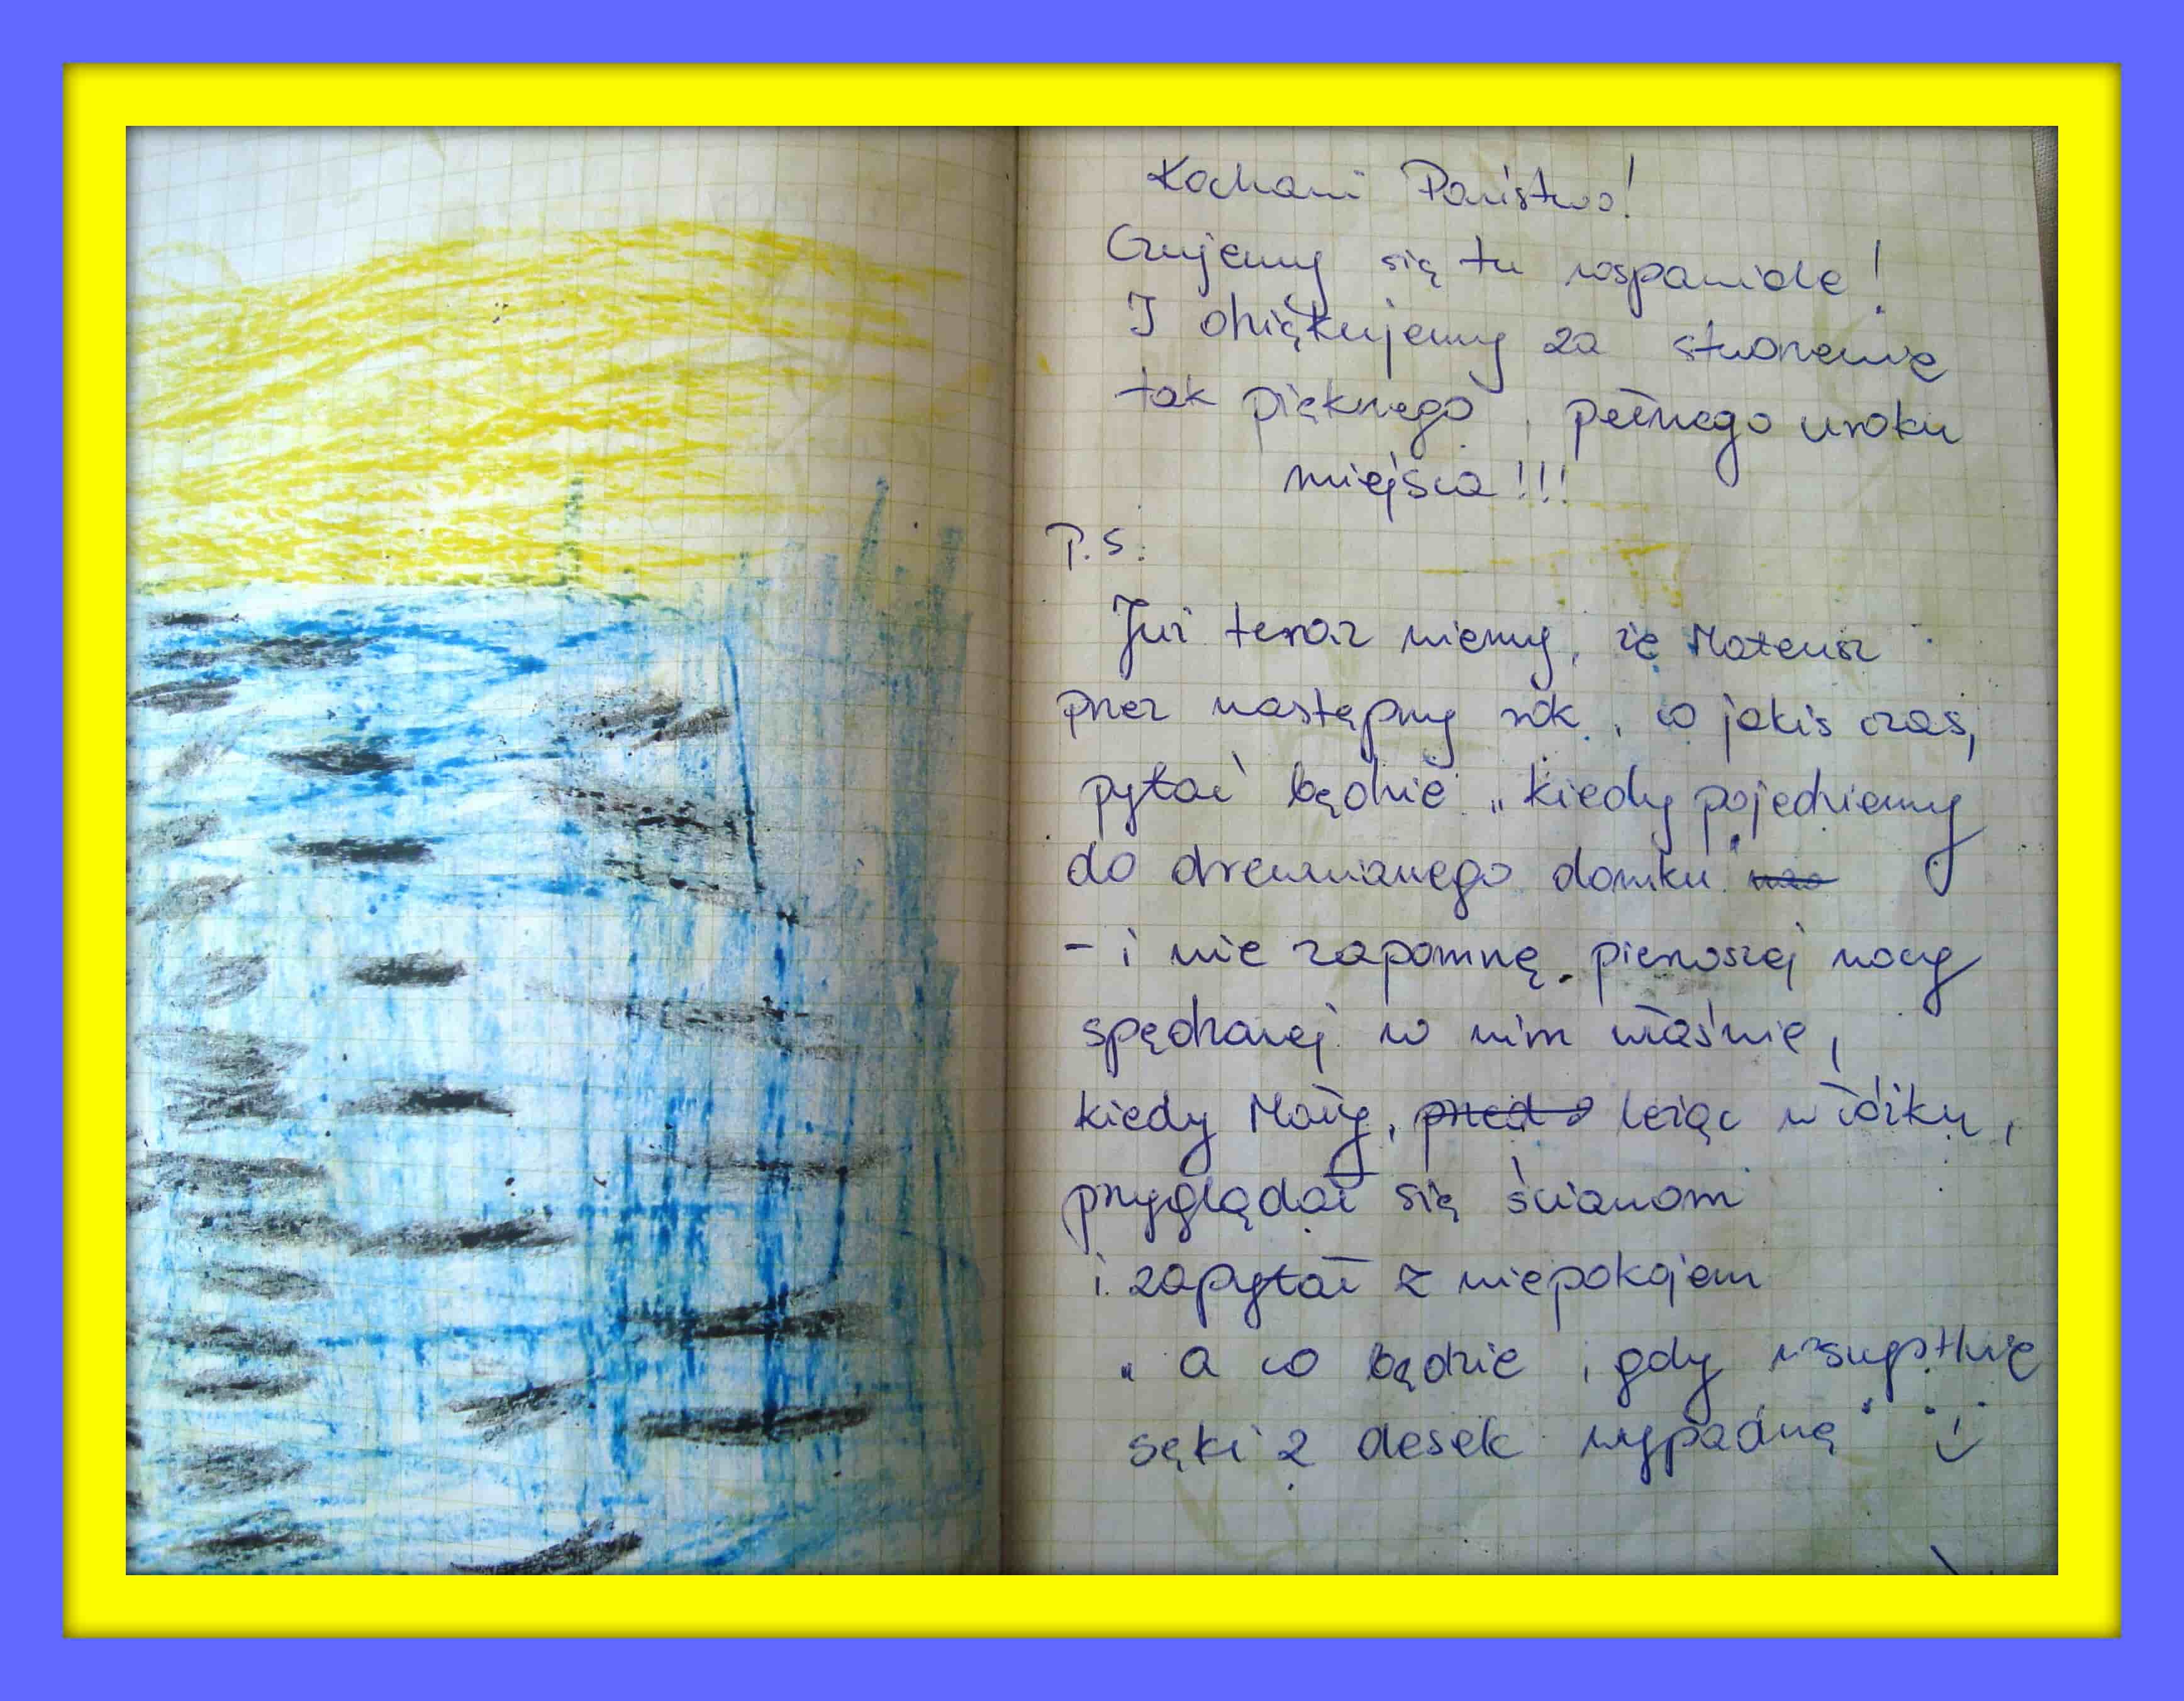 Kochani Państwo!
Czujemy się tu wspaniale!
I dziękujemy za stworzenie
tak pięknego, pełnego uroku
miejsca!!!
P.S.
Już teraz wiemy, że Mateusz
przez następny rok, co jakiś czas,
pytać będzie „kiedy pojedziemy
do drewnianego domku"
- i nie zapomnę pierwszej nocy
spędzonej w nim właśnie,
kiedy Mały, leżąc w łóżku,
przyglądał się ścianom
i zapytał z niepokojem
„a co będzie, gdy wszystkie
sęki z desek wypadną" :)